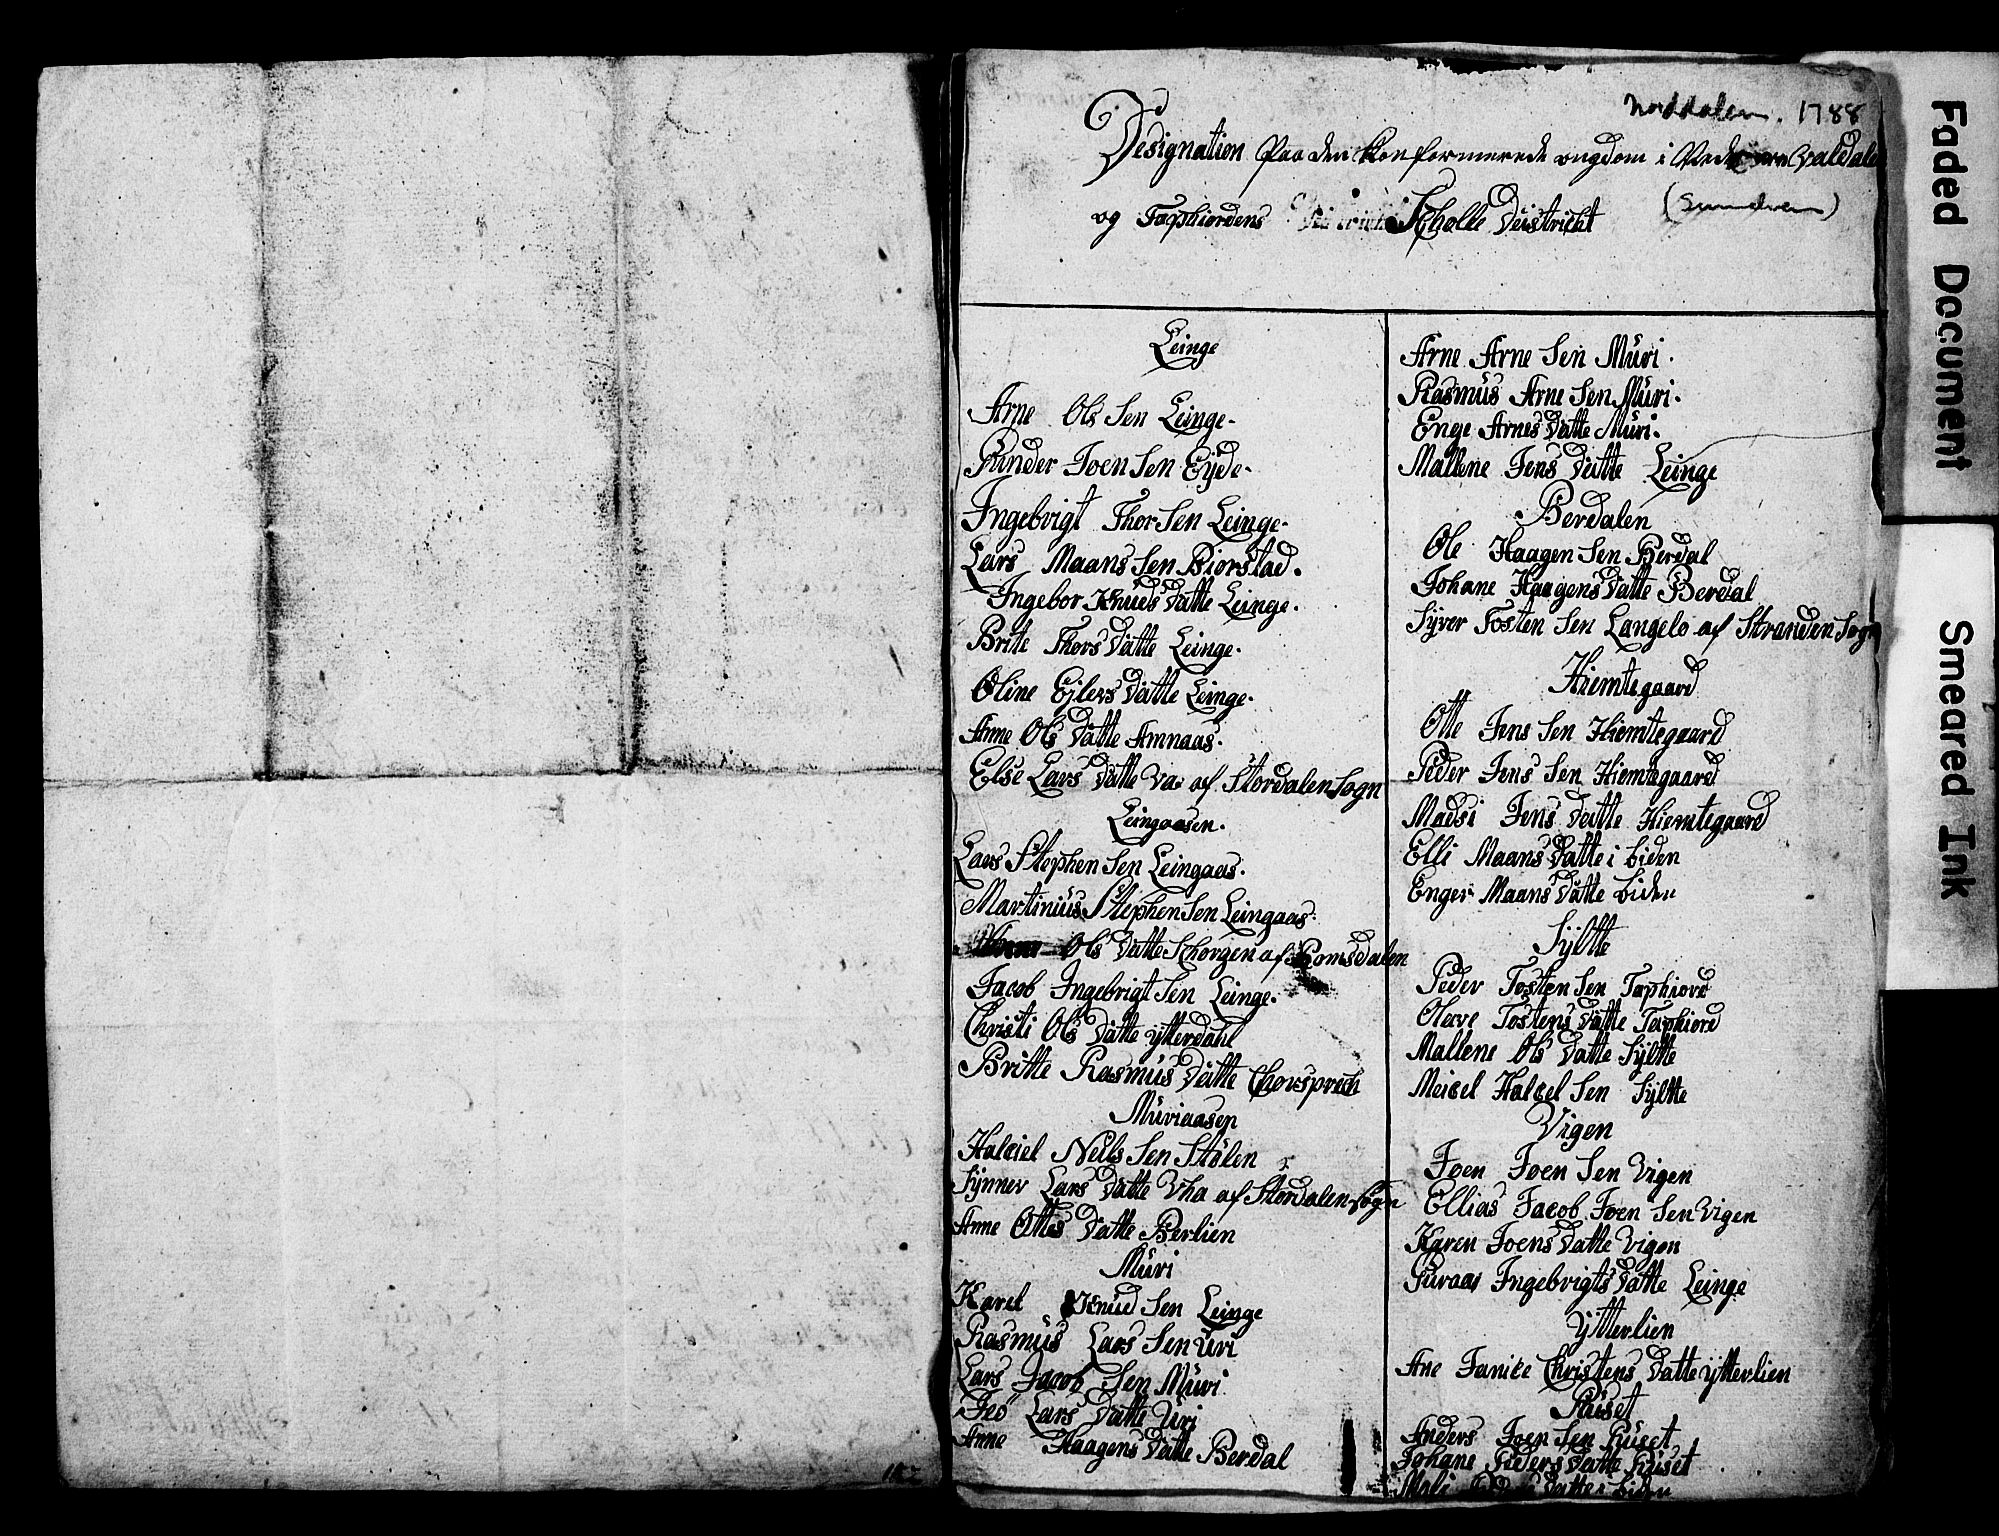 Norddalen. 1788
Designation Paa den Konformerede ungdom i Valdal
(Sunelven)
og Taphiordens Scholle Deistricht
Leinge
Arne Ols Sen Leinge.
Gunder Joen Sen Eÿde.
Ingebrigt Thor Sen Leinge.
Lars Maans Sen Biorstad.
Ingebor Knuds Datte Leinge.
Brite Thors Datte Leinge.
Oline Ejlers Datte Leinge.
Anne Ols Datte Amnaas.
Else Lars Datte Va af Stordalen Sogn
Leingaasen.
Lars Stephen Sen Leingaas.
Martinius Stephen Sen Leingaas.
Ols Datte Schorgen af Romsdalen
Jacob Ingebrigt Sen Leinge.
Christi Ols Datte Ytterdahl
Britte Rasmus Datte
Muriaasen
Halciel Neils Sen Stølen
Synnev Lars Datte Vha af Stordalen Sogn
Anne Ottes Datte Berlien
Müri
Karel Knud Sen Leinge
Rasmus Lars Sen Uri
Lars Jacob Sen Muri
Lars Datte Uri
Anne Haagens Datte Berdal
Arne Arne Sen Müri.
Rasmus Arne Sen Müri.
Enge Arnes Datte Müri.
Mallene Jens Datte Leinge
Berdalen
Ole Haagen Sen Berdal
Johane Haagens Datte Berdal
Syver Tosten Sen Langelo af Stranden Sogn
Hiemtegaard
Otte Jens Sen Hiemtegaard
Peder Jens Sen Hiemtegaard
Madsi Jens Datte Hiemtegaard
Elli Maans Datte i Liden
Enger Maans Datte Liden
Sÿlte
Peder Tosten Sen Taphiord
Olave Tostens Datte Taphiord
Mallene Ols Datte Sÿlte
Meicel Halcel Sen Sÿlte
Vigen
Joen Joen Sen Vigen
Ellias Jacob Joen Sen Vigen
Karen Joens Datte Vigen
Guraa Ingebrigts Datte Leinge
Ytterlien
Ane Janicke Christens Datte Ytterlien
Ruset
Anders Joen Sen Ruset
Johane Peders Datte Ruset
Mali Datte Liden
Faded Document
Smeared Ink